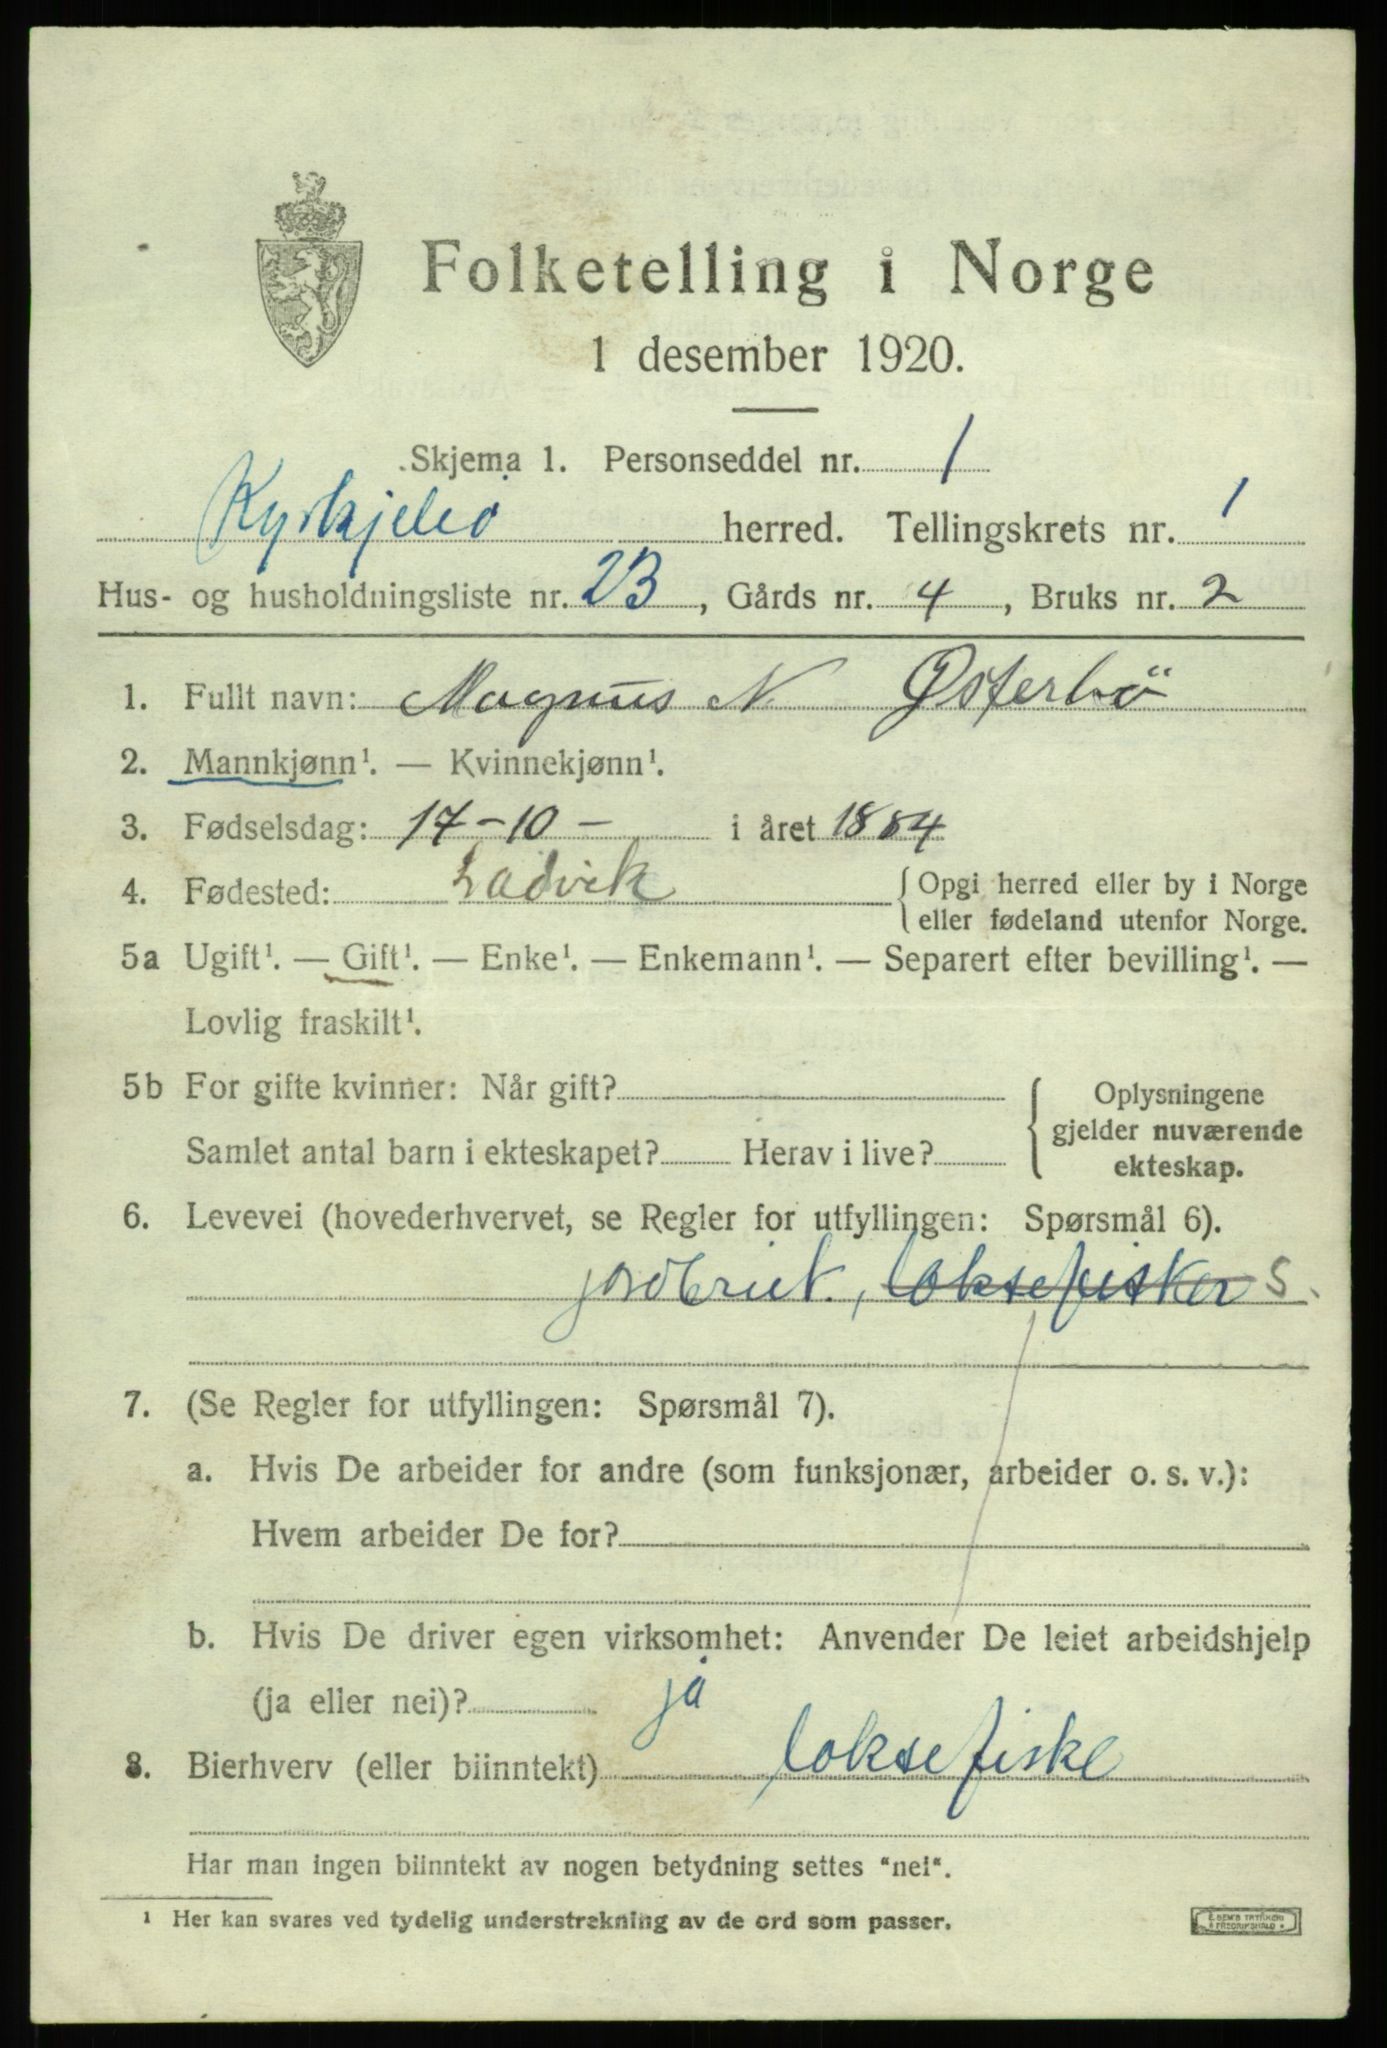 Folketelling i Norge
1 desember 1920.
Skjema 1. Personseddel nr. 1
Kyrkjebø herred. Tellingskrets nr. 1
Hus- og husholdningsliste nr. 23, Gårds nr. 4, Bruks nr. 2
1. Fullt navn: Magnus N. Østerbö
2. Mannkjønn¹. — Kvinnekjønn¹.
3. Fødselsdag: 17-10- i året 1884
4. Fødested: Ladvik { Opgi herred eller by i Norge
eller fødeland utenfor Norge.
5a Ugift¹. — Gift¹. — Enke¹. — Enkemann¹. — Separert efter bevilling¹. —
Lovlig fraskilt¹.
5b For gifte kvinner: Når gift? { Oplysningene
gjelder nuværende
Samlet antal barn i ekteskapet? Herav i live?
ekteskap.
6. Levevei (hovederhvervet, se Regler for utfyllingen: Spørsmål 6).
jordbruk, laksefisker S.
7. (Se Regler for utfyllingen: Spørsmål 7).
a. Hvis De arbeider for andre (som funksjonær, arbeider o. s. v.):
Hvem arbeider De for?
b. Hvis De driver egen virksomhet: Anvender De leiet arbeidshjelp
(ja eller nei)? ja
8. Bierhverv (eller biinntekt) laksefiske
Har man ingen biinntekt av nogen betydning settes "nei".
¹ Her kan svares ved tydelig understrekning av de ord som passer.